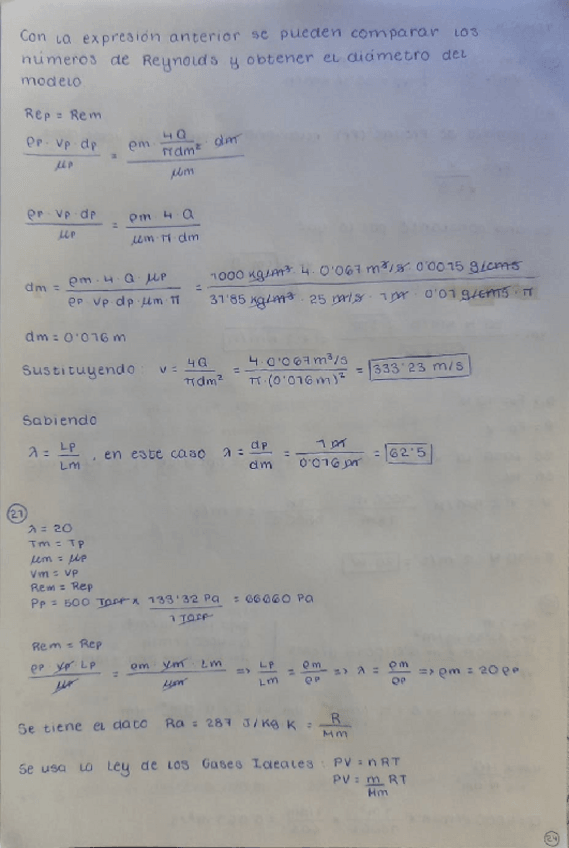 Con la expresión anterior se pueden comparar los
números de Reynolds y obtener el diámetro del
modelo
Rep = Rem
ρp · vp · dp / μp = ρm · 4Q / πdm² · dm / μm
ρp · vp · dp / μp = ρm · 4 · Q / μm · π · dm
dm = ρm · 4 · Q · μp / ρp · vp · dp · μm · π = 1000 kg/m³ · 4 · 0'067 m³/s · 0'0015 g/cms / 31'85 kg/m³ · 25 m/s · 1 m · 0'01 g/cms · π
dm = 0'016 m
Sustituyendo: v = 4Q / πdm² = 4 · 0'067 m³/s / π · (0'016 m)² = 333'23 m/s
Sabiendo
λ = Lp / Lm , en este caso λ = dp / dm = 1 m / 0'016 m = 62'5
27
λ = 20
Tm = Tp
μm = μp
Vm = Vp
Rem = Rep
Pp = 500 Torr x 133'32 Pa / 1 Torr = 66660 Pa
Rem = Rep
ρp vp Lp / μp = ρm vm Lm / μm => Lp / Lm = ρm / ρp => λ = ρm / ρp => ρm = 20 ρp
Se tiene el dato Ra = 287 J/kg K = R / Mm
Se usa la Ley de los Gases Ideales : PV = nRT
PV = m / Mm RT
24